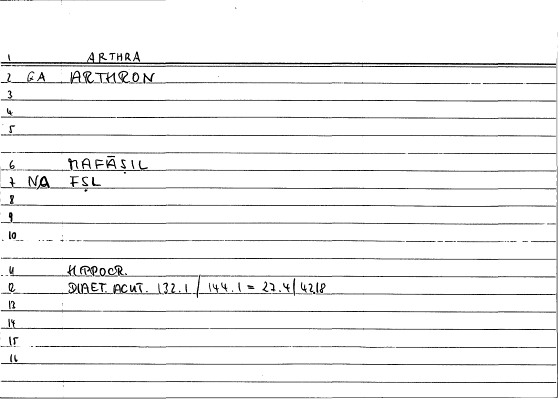 1 ARTHRA
2 GA ARTHRON
3
4
5
6 MAFĀṢIL
7 NA FṢL
8
9
10
11 HIPPOCR.
12 DIAET. ACUT. 132.1 / 144.1 = 27.4 / 42.8
13
14
15
16